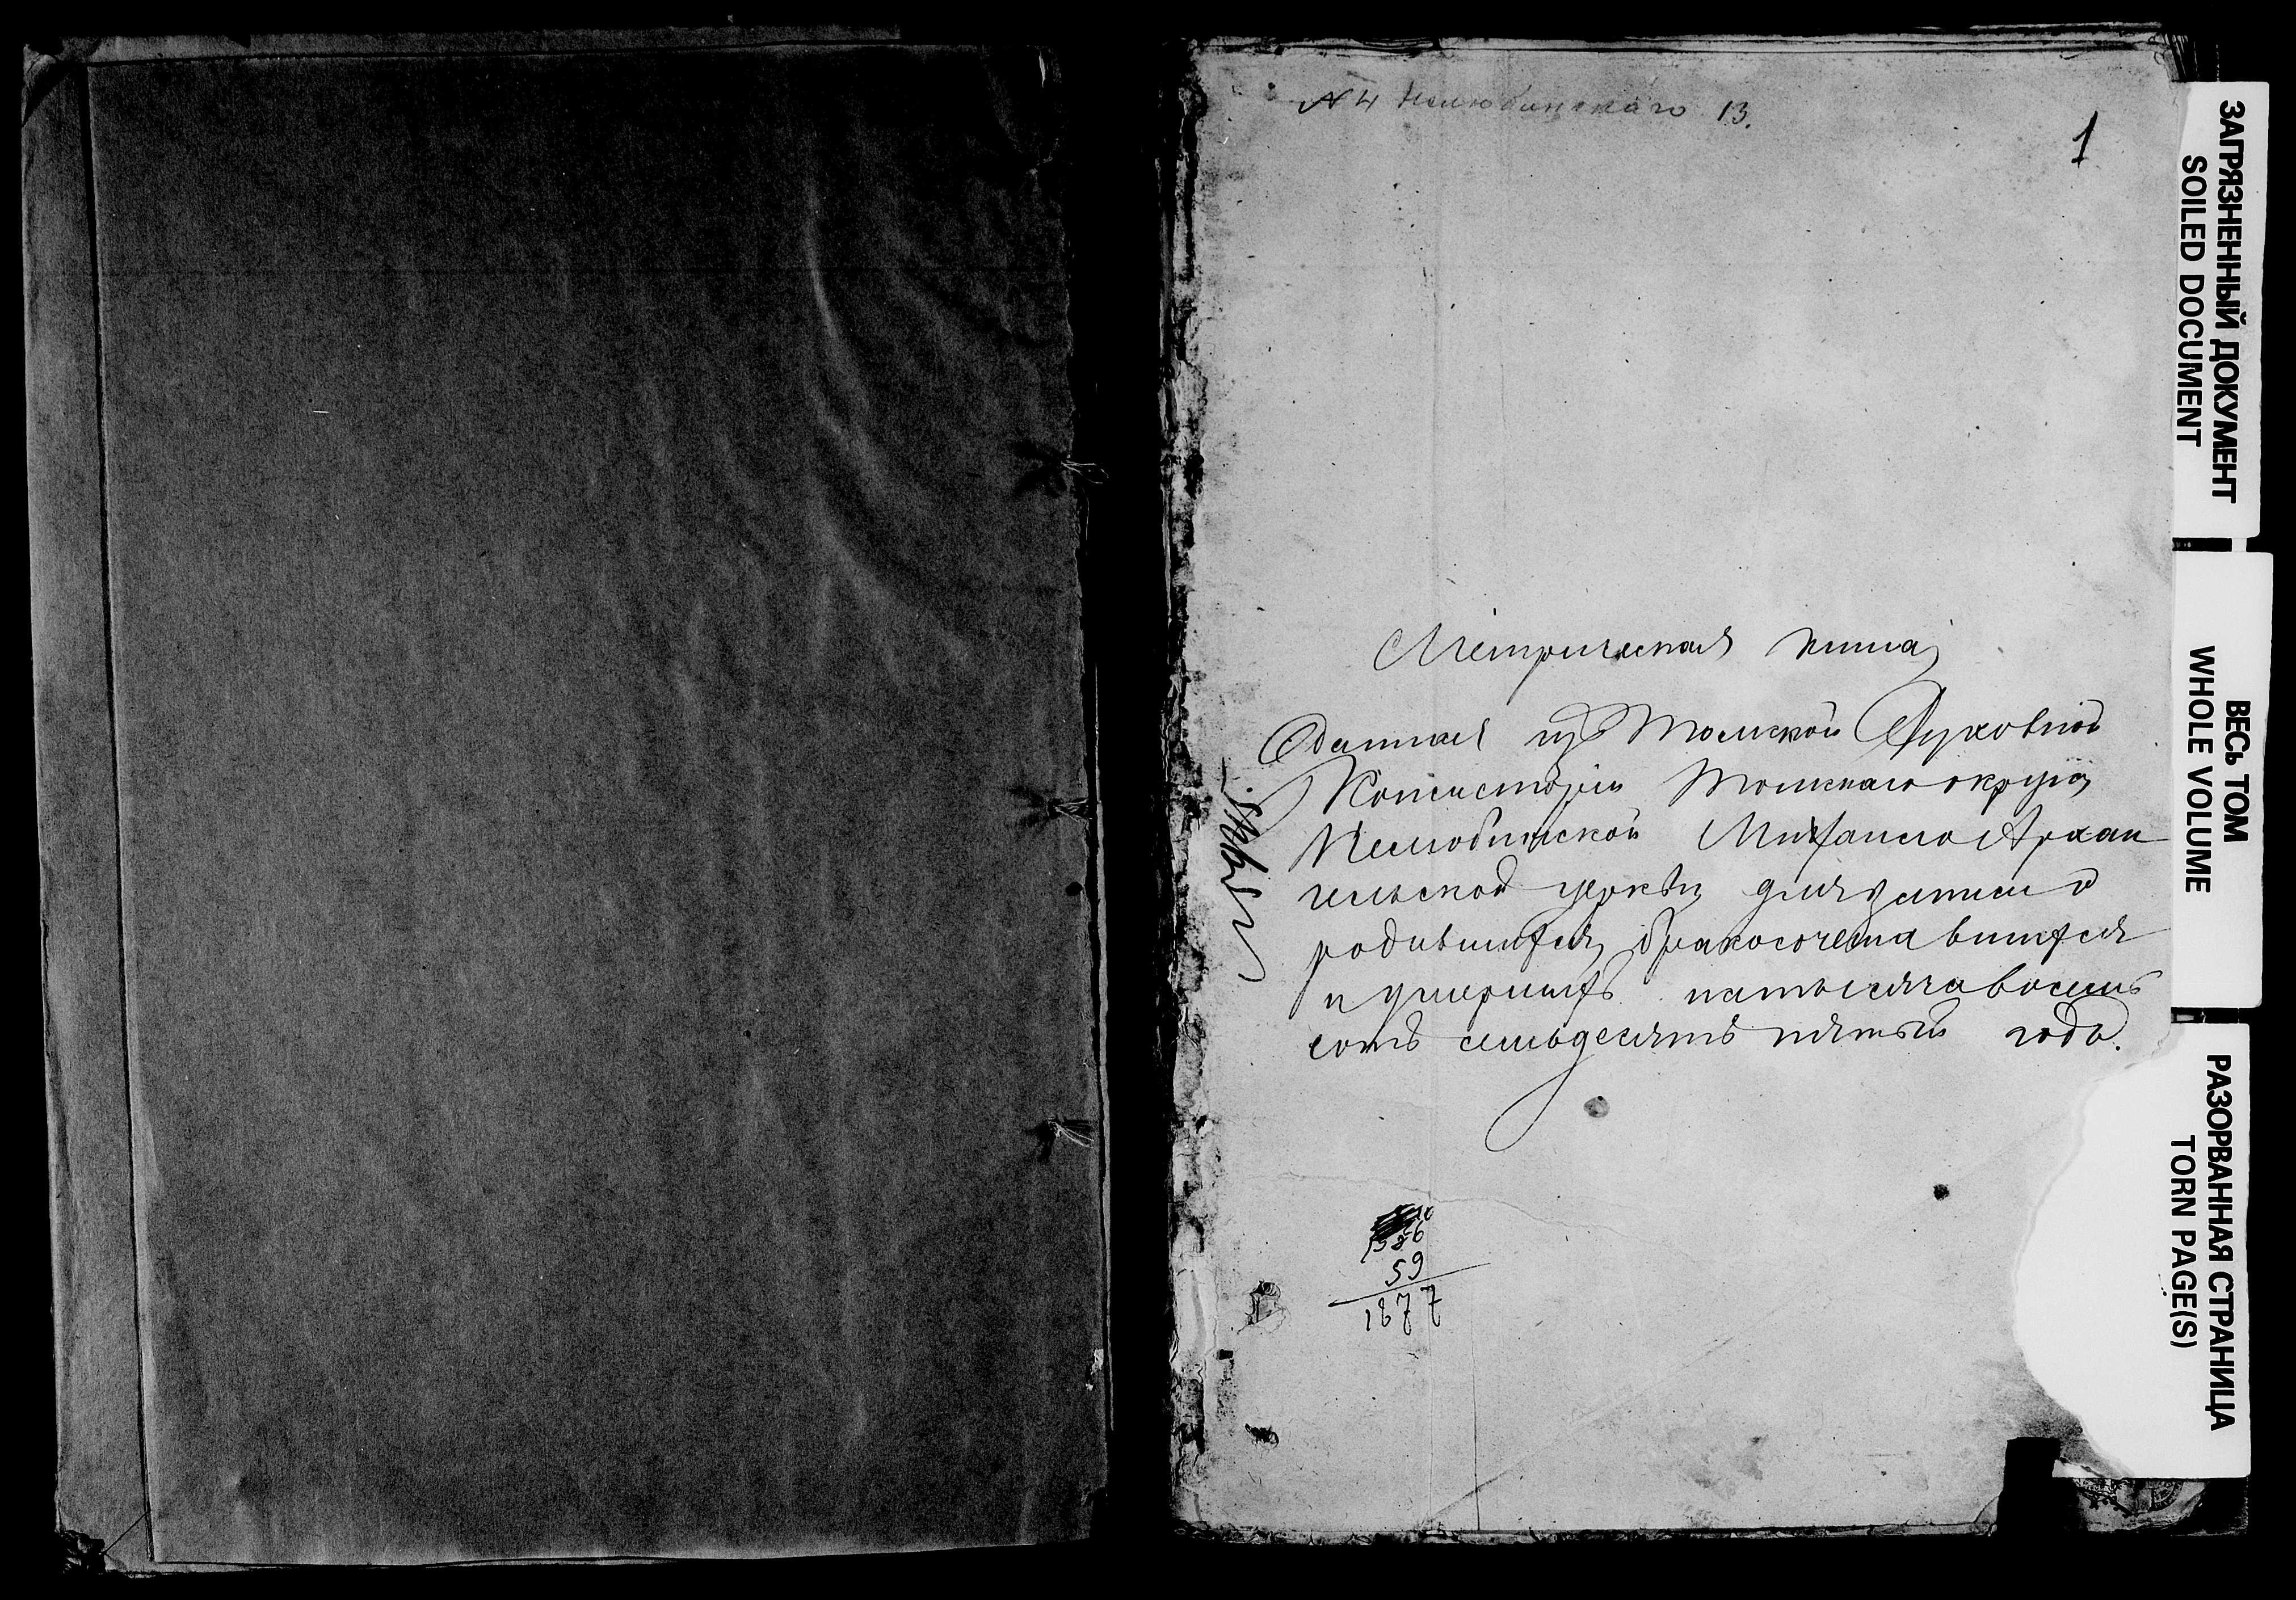 N 4 Нелюбинскаго 13.
1
Метрическая книга,
Данная изъ Томской Духовной
Консисторіи Томскаго округа,
Нелюбинской Михаило Архан
гельской церкви, для записи о
родившихся, бракосочетавшихся
и умершихъ на тысяча восемь
сотъ семьдесятъ пятый годъ.
59
1877
ЗАГРЯЗНЕННЫЙ ДОКУМЕНТ
SOILED DOCUMENT
ВЕСЬ ТОМ
WHOLE VOLUME
РАЗОРВАННАЯ СТРАНИЦА
TORN PAGE(S)